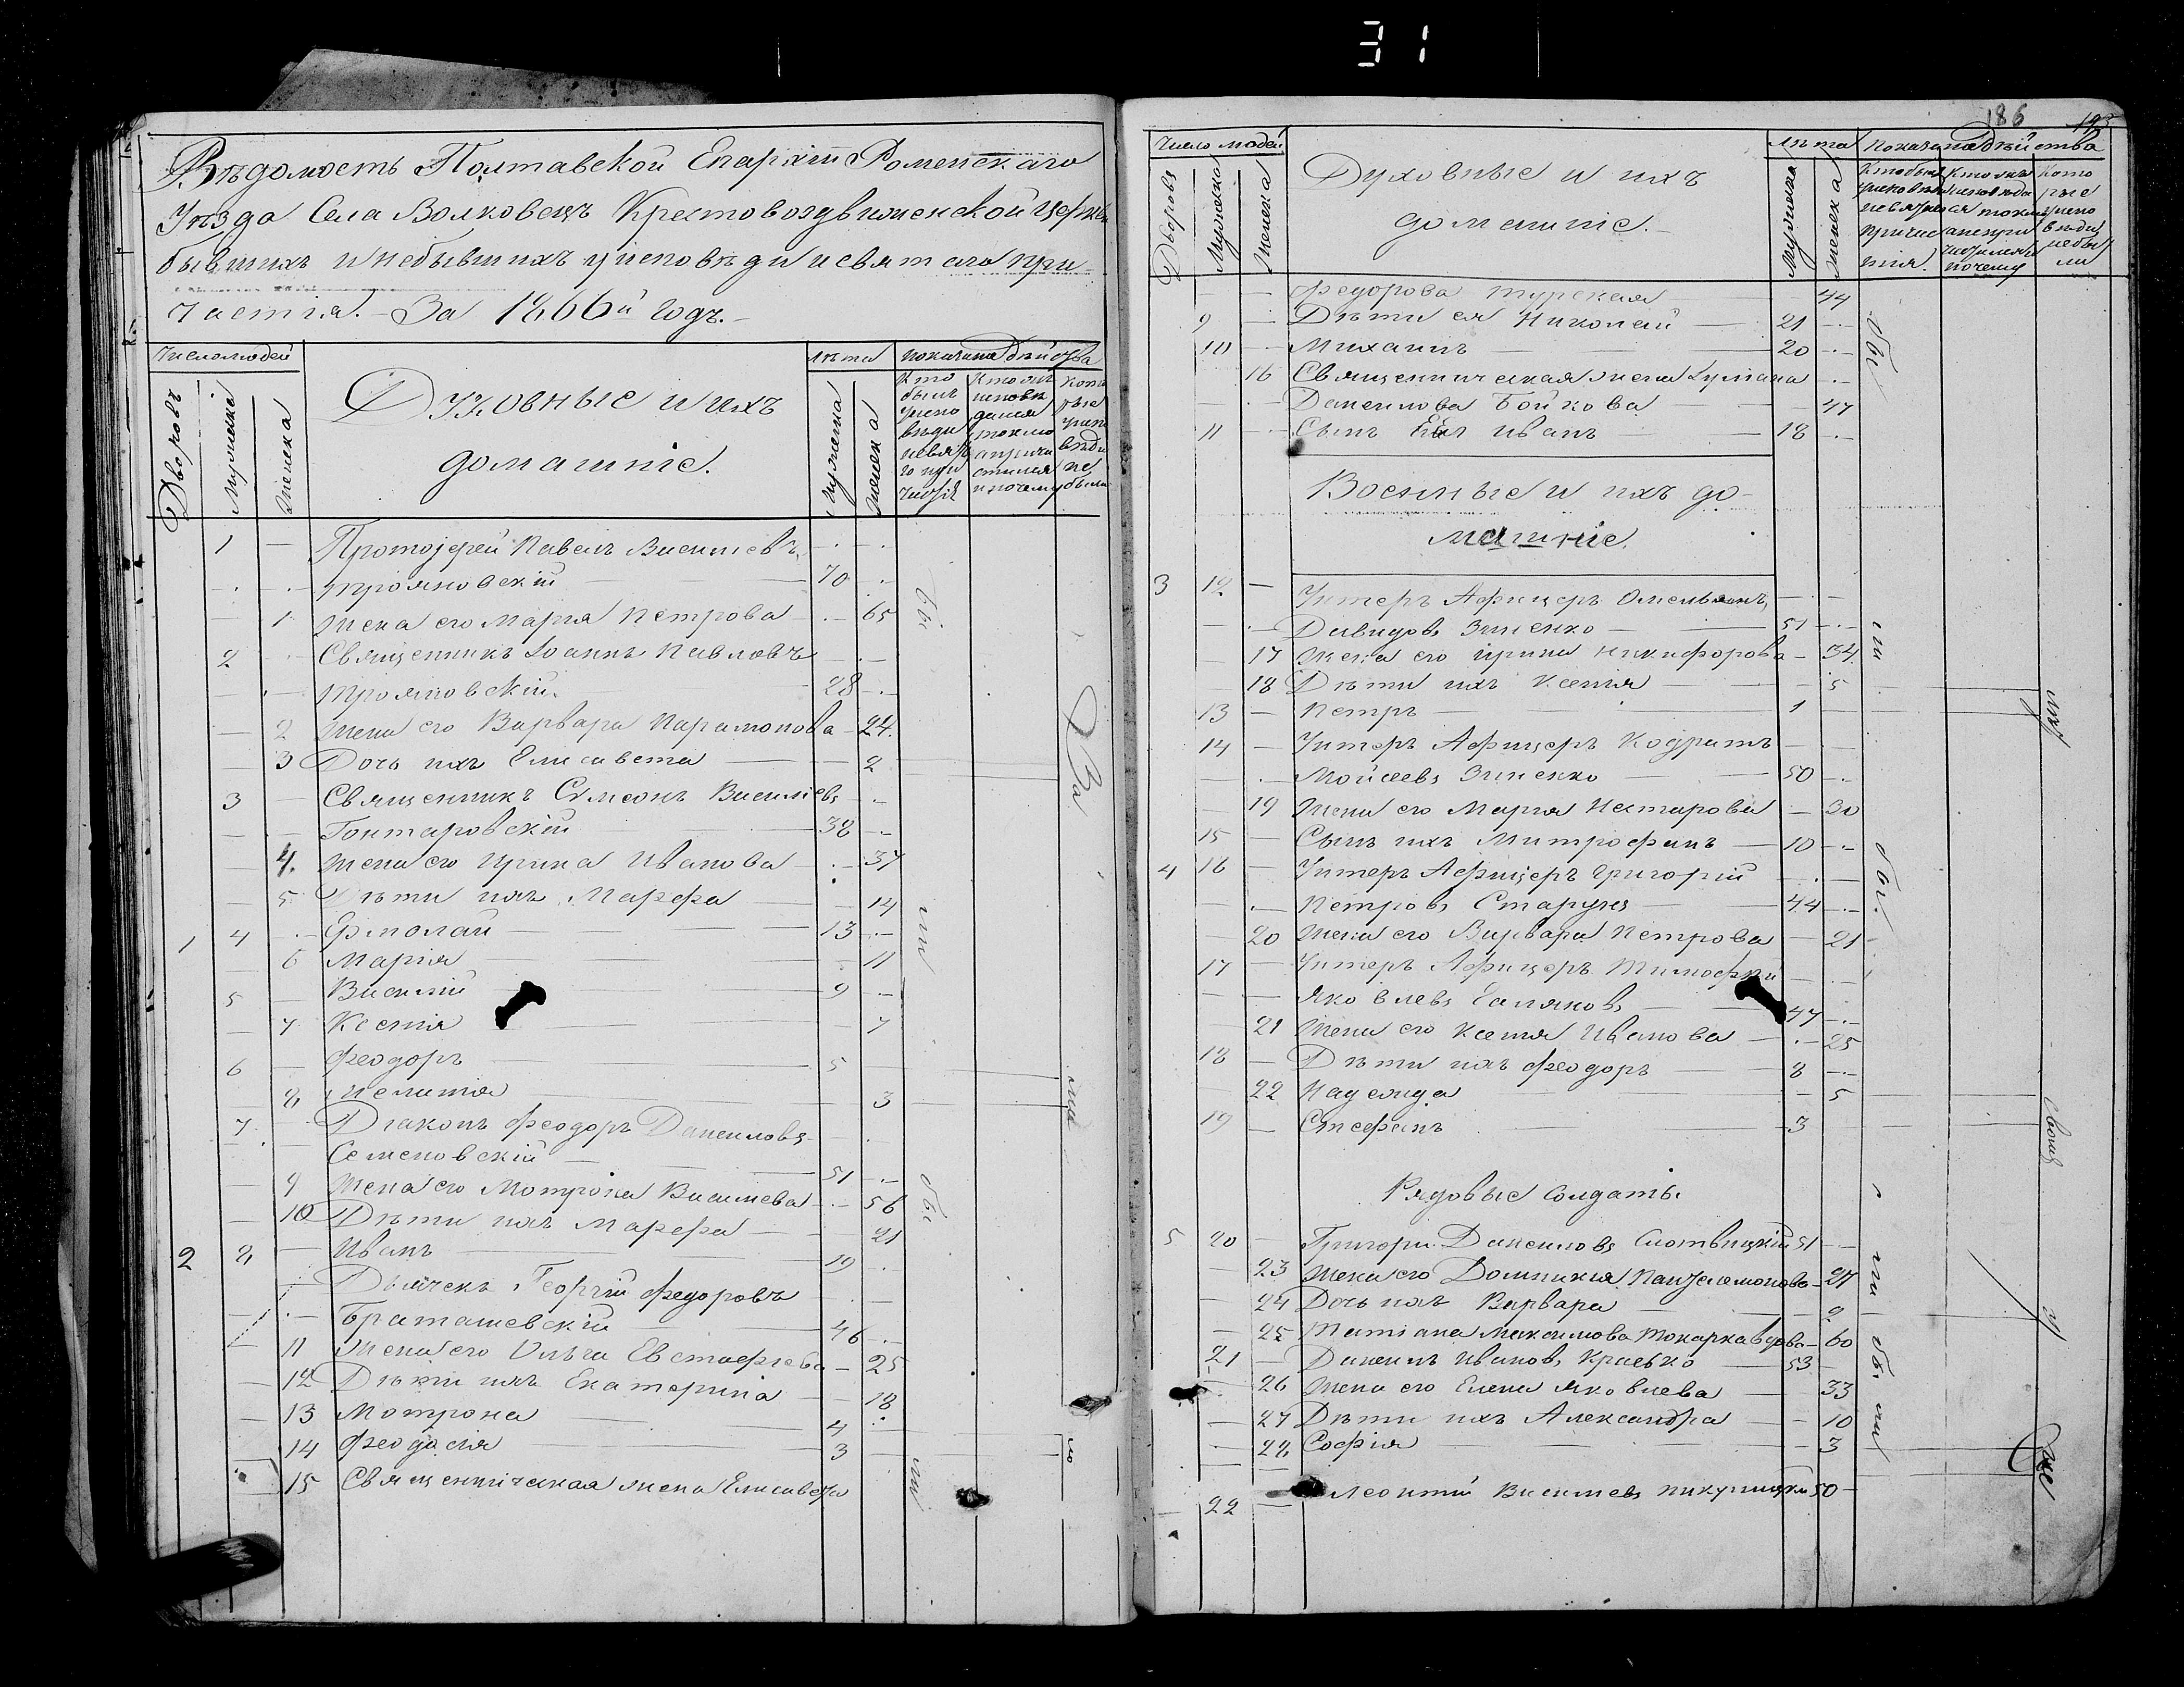 31
Вѣдомость Полтавской Епархіи Роменскаго
Уѣзда Села Волковецъ Крестовоздвиженской Церкви
бывшихъ и небывшихъ у исповѣди и святаго при-
частія. - За 1866й годъ. -
Число людей
Дворовъ
Мужеска
Женска
Духовные и ихъ
домашніе.
лѣта
мужеска
женска
показаніе дѣйства
Кто былъ у исповѣди и святаго причастія
Кто исповѣдался токмо а не причастился и почему
Которые у исповѣди не были
1 — Протоіерей Павелъ Василіевъ
Трояновскій — 70
1 жена его Марія Петрова — 65
2 Священникъ Іоаннъ Павловъ
Трояновскій. 28
2 жена его Варвара Парамонова — 24.
3 Дочь ихъ Елисавета — 2
3 — Священникъ Сѵмеонъ Василіевъ
Гонтаровскій — 38
4. жена его Ирина Иванова — 37
5 Дѣти ихъ Марѳа — 14
1 4 Ермолай — 13
6 Марія — 11
5 — Василій — 9
7 Ксенія — 7
6 — Феодоръ — 5
8 — 3
7 Діаконъ Феодоръ Даніиловъ
Семеновскій — 51
9 Жена его Мотрона Василіева — 56
10 Дѣти ихъ Марфа — 21
2 8 — Иванъ — 19
Дьячекъ Георгій Федоровъ
Браташевскій — 46
11 Жена его Ольга Евстафіева — 25
12 Дѣти ихъ Екатерина — 18
13 Мотрона — 4
14 Феодосія — 3
15 Священническая жена Елисавета
бы
ли
бы
ли
Два
186
193
Число людей
Дворовъ
Мужеска
Женска
Духовные и ихъ
домашніе. -
лѣта
Мужеска
женска
Показаніе дѣйства
Кто былъ у исповѣди и святаго причастія.
Кто исповѣдался токмо а не причастился и почему
Которые у исповѣди не были
Федорова Турская — 44
9 Дѣти ея Николай — 21
10 Михаилъ — 20
16 Священническая жена
Даниилова Бойкова — 47
11 Сынъ Ея Иванъ — 18
Военные и ихъ до-
машніе.
3 12 — Унтеръ Афицеръ Омельянъ
Давидовъ Зиненко — 51
17 жена его Ирина Никифорова — 34
18 Дѣти ихъ Ксенія — 5
13 — Петръ — 1
14 — Унтеръ Афицеръ Кодратъ
Мойсеевъ Зиненко — 50
19 жена его Марія Нестерова — 30
15 — Сынъ ихъ Митрофанъ — 10
4 16 — Унтеръ Афицеръ Григорій
Петровъ — 44
20 жена его Варвара Петрова — 21
17 — Унтеръ Афицеръ Тимофей
Яковлевъ — 47
21 жена его Ксенія Иванова — 25
18 — Дѣти ихъ Феодоръ — 8
22 Надежда — 5
19 — Стефанъ — 3
Рядовые солдаты
5 20 — Григорій Данииловъ 51
23 жена его Домникія Пантелемонова — 27
24 Дочь ихъ Варвара — 2
25 Татіана Максимова Токарка вдова — 60
21 — Даніилъ Ивановъ — 53
26 жена его Елена Яковлева — 33
27 Дѣти ихъ Александра — 10
28 Софія — 3
22 — Леонтій Василіевъ 50
бы
ли
бы.
ли
бы
ли